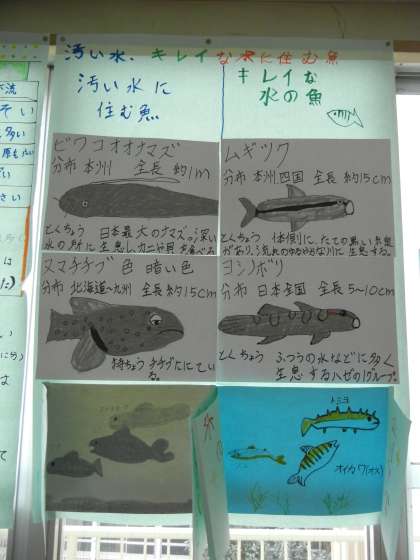 汚い水、キレイな水に住む魚
汚い水に
住む魚
キレイな
水の魚
ビワコオオナマズ
分布 本州 全長 約1m
とくちょう 日本最大のナマズ。深い
水の所に生息し、カニや貝を食べる
ムギツク
分布 本州,四国 全長 約15cm
とくちょう 体側に、たての黒い糸息
があり、流れのゆるやかな川に生息する。
ヌマチチブ 色 暗い色
分布 北海道〜九州 全長 約15cm
特ちょう チチブににてい
る。
ヨシノボリ
分布 日本全国 全長 5〜10cm
とくちょう ふつうの水などに多く
生息するハゼの1グループ。
トミヨ
オイカワ(オス)
流
そい
多い
さい